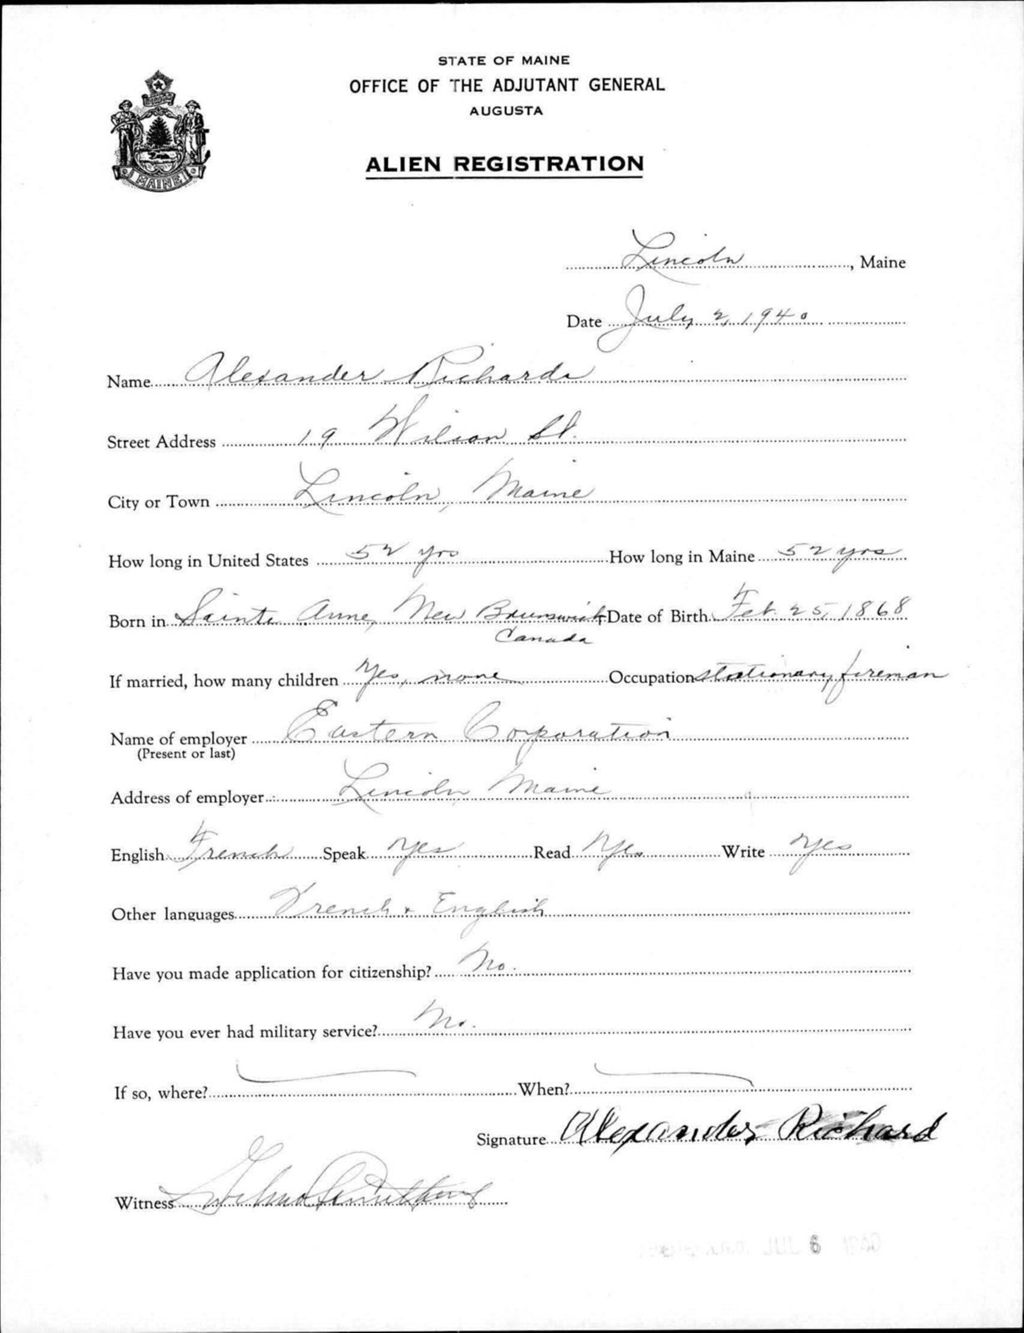 STATE OF MAINE
OFFICE OF THE ADJUTANT GENERAL
AUGUSTA
ALIEN REGISTRATION
MAINE
Lincoln, Maine
Date July 2, 1940
Name Alexander Richards
Street Address 19 Wilson St.
City or Town Lincoln, Maine
How long in United States 52 yrs How long in Maine 52 yrs
Born in Sainte Anne, New Brunswick Date of Birth Feb. 25, 1868
Canada
If married, how many children Yes, none Occupation stationary fireman
Name of employer Eastern Corporation
(Present or last)
Address of employer Lincoln, Maine
English French Speak Yes Read Yes Write Yes
Other languages French + English
Have you made application for citizenship? No.
Have you ever had military service? No.
If so, where? When?
Signature Alexander Richard
Witness
JUL 6 1940